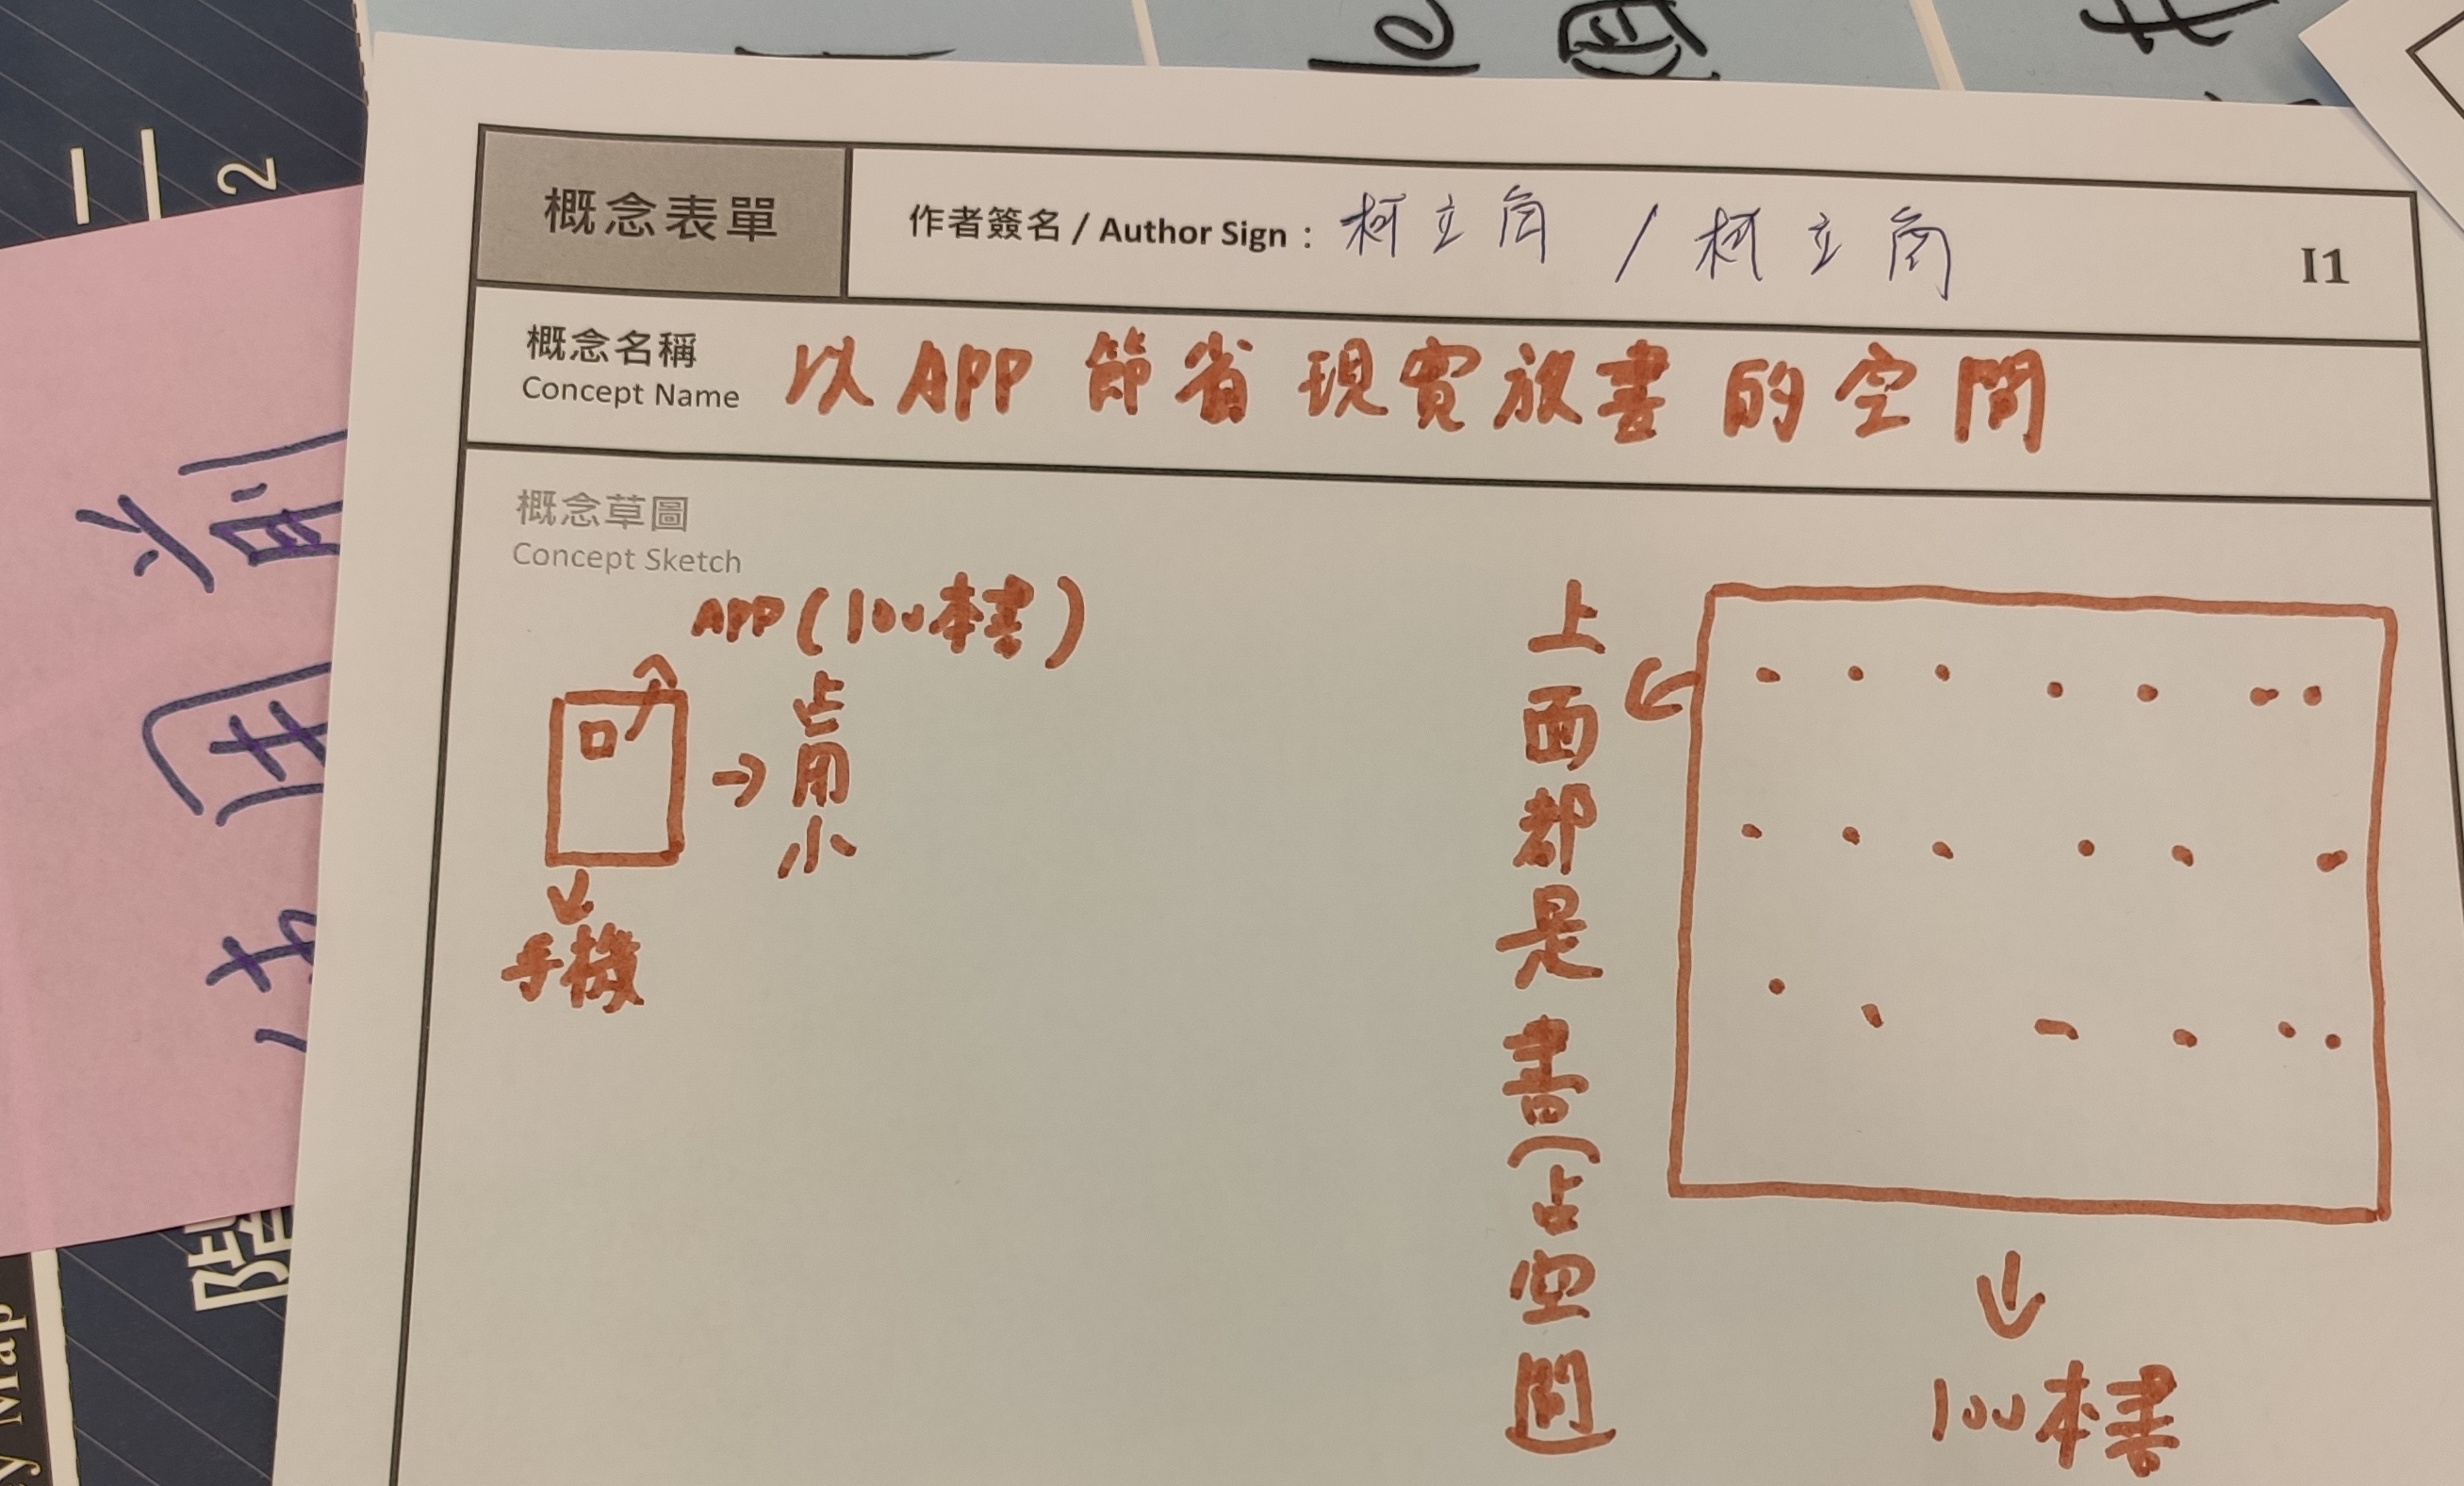 概念表單
作者簽名 / Author Sign : 柯立肯 / 柯立肯
I1
概念名稱
Concept Name
以APP 節省現實放書的空間
概念草圖
Concept Sketch
APP (100本書)
占用小
手機
上面都是書(占空間)
100本書
2
y Map